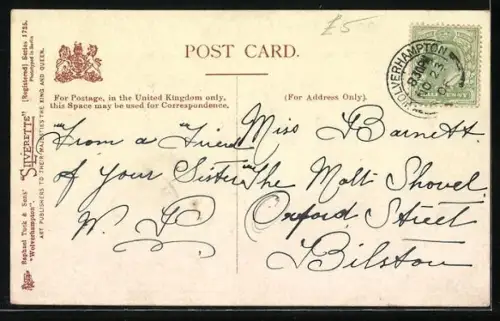 £5
POST CARD.
For Postage, in the United Kingdom only,
this Space may be used for Correspondence.
(For Address Only).
"From a "Friend"
of your Sister"
W. B.
Miss Barnett.
The Malt Shovel
Oxford Street
Bilston
WOLVERHAMPTON
NO 23
Raphael Tuck & Sons' "SILVERETTE" [Registered] Series 1735.
"Wolverhampton". Phototyped in Berlin
ART PUBLISHERS TO THEIR MAJESTIES THE KING AND QUEEN.